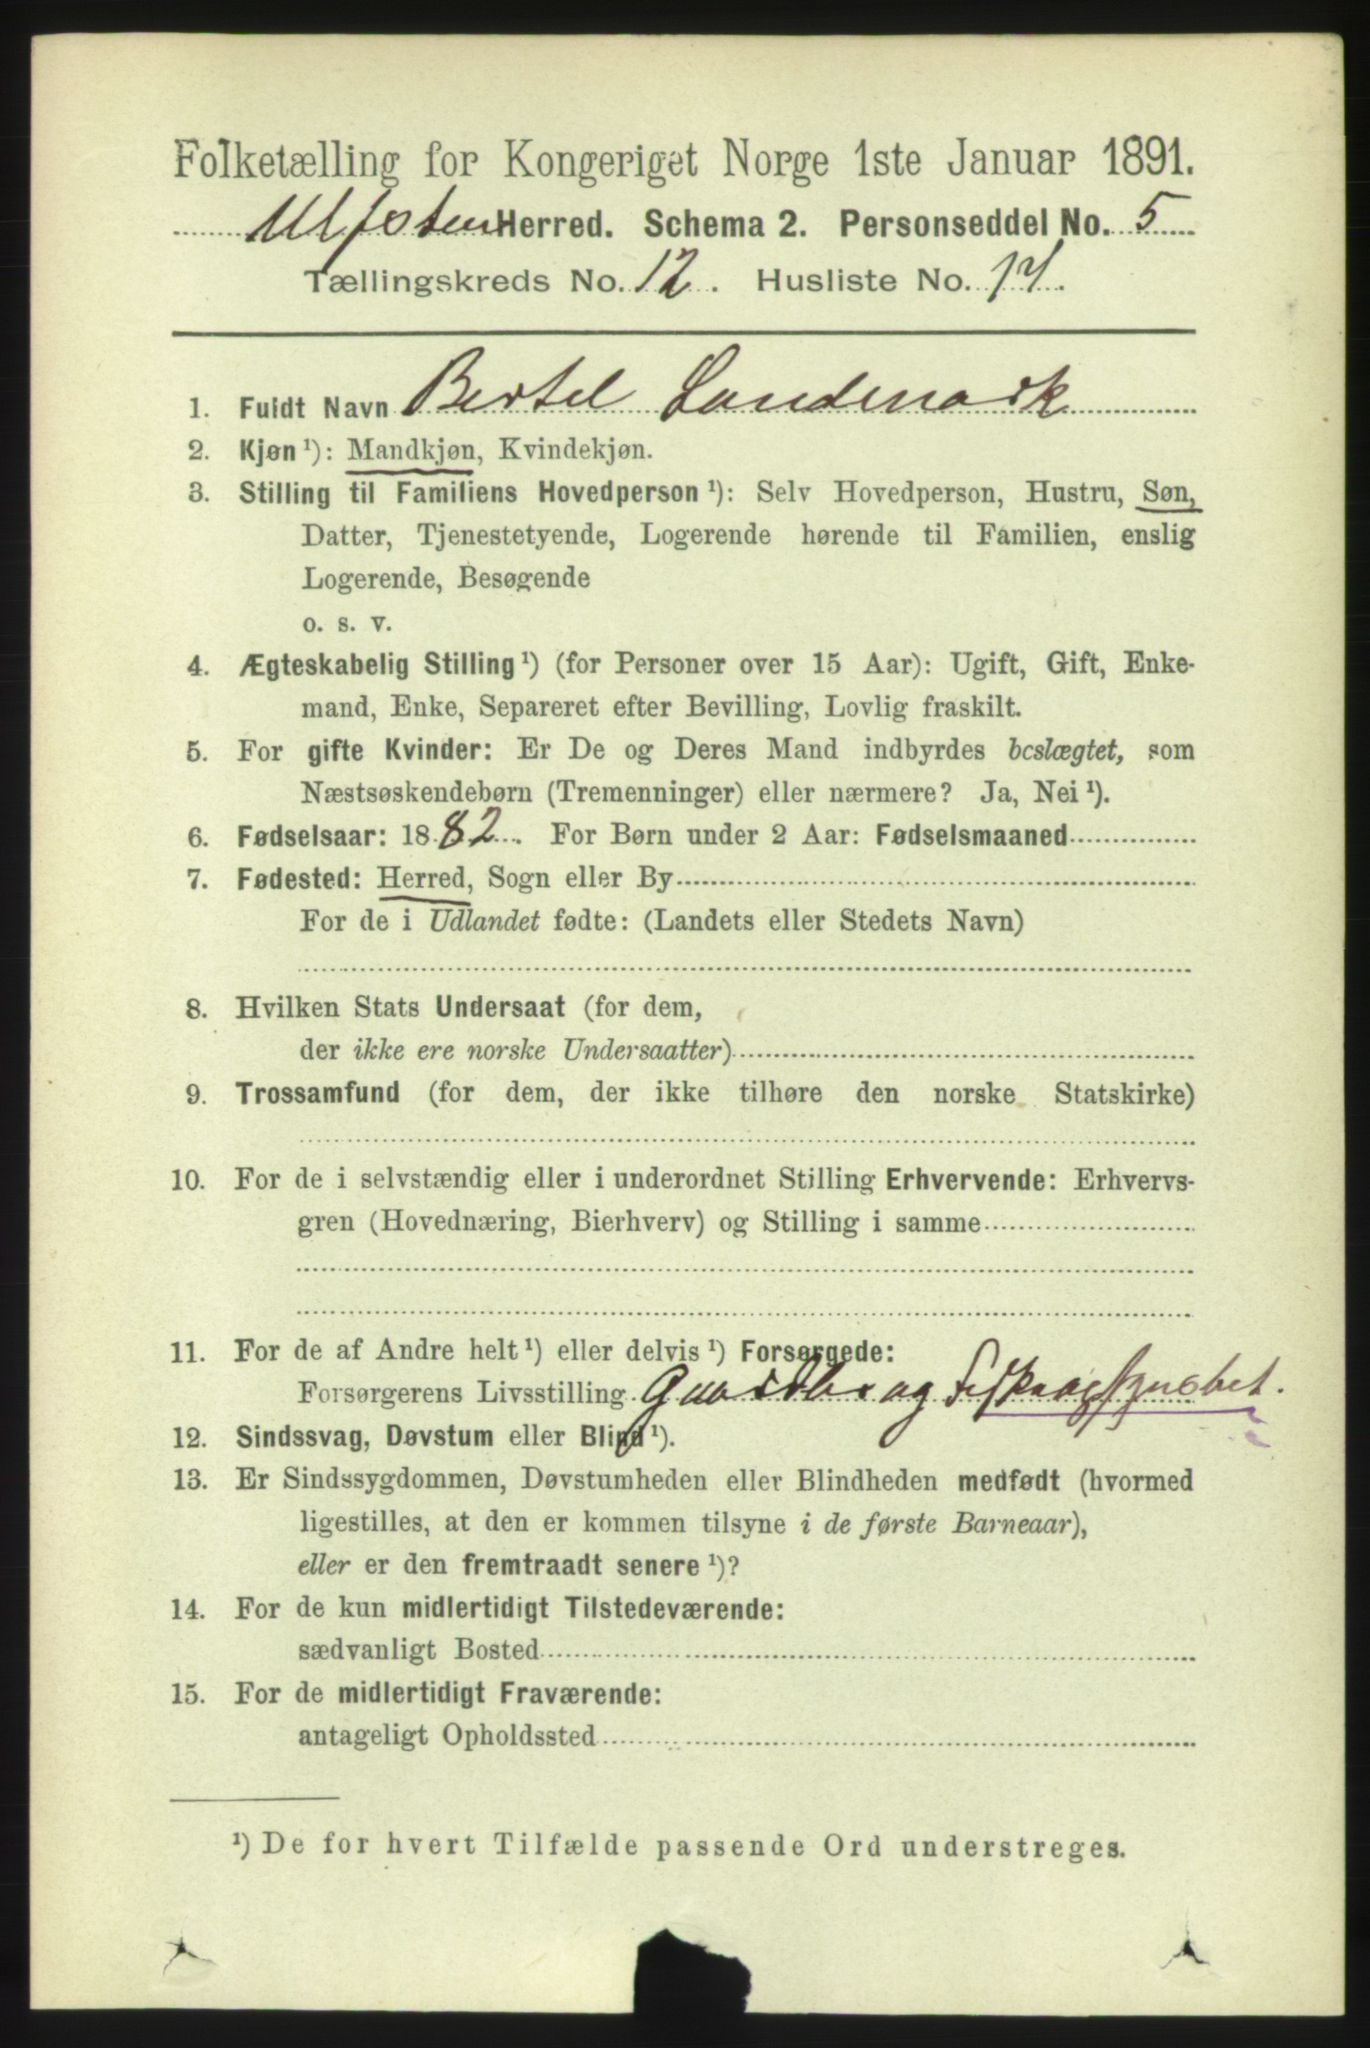 Folketælling for Kongeriget Norge 1ste Januar 1891.
Ulfsten Herred. Schema 2. Personseddel No. 5
Tællingskreds No. 12. Husliste No. 17.
1. Fuldt Navn Bertel Landmark
2. Kjøn ¹): Mandkjøn, Kvindekjøn.
3. Stilling til Familiens Hovedperson ¹): Selv Hovedperson, Hustru, Søn,
Datter, Tjenestetyende, Logerende hørende til Familien, enslig
Logerende, Besøgende
o. s. v.
4. Ægteskabelig Stilling ¹) (for Personer over 15 Aar): Ugift, Gift, Enke-
mand, Enke, Separeret efter Bevilling, Lovlig fraskilt.
5. For gifte Kvinder: Er De og Deres Mand indbyrdes beslægtet, som
Næstsøskendebørn (Tremenninger) eller nærmere? Ja, Nei ¹).
6. Fødselsaar: 1882. For Børn under 2 Aar: Fødselsmaaned
7. Fødested: Herred, Sogn eller By
For de i Udlandet fødte: (Landets eller Stedets Navn)
8. Hvilken Stats Undersaat (for dem,
der ikke ere norske Undersaatter)
9. Trossamfund (for dem, der ikke tilhøre den norske Statskirke)
10. For de i selvstændig eller i underordnet Stilling Erhvervende: Erhvervs-
gren (Hovednæring, Bierhverv) og Stilling i samme
11. For de af Andre helt ¹) eller delvis ¹) Forsørgede:
Forsørgerens Livsstilling Gaardbr og
12. Sindssvag, Døvstum eller Blind ¹).
13. Er Sindssygdommen, Døvstumheden eller Blindheden medfødt (hvormed
ligestilles, at den er kommen tilsyne i de første Barneaar),
eller er den fremtraadt senere ¹)?
14. For de kun midlertidigt Tilstedeværende:
sædvanligt Bosted
15. For de midlertidigt Fraværende:
antageligt Opholdssted
¹) De for hvert Tilfælde passende Ord understreges.